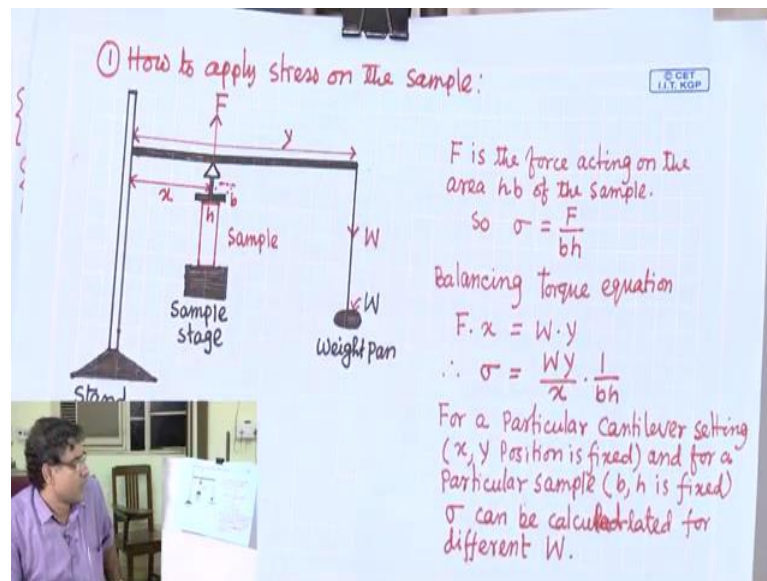 ① How to apply stress on the sample:
© CET
I.I.T. KGP
F
y
x
h
b
Sample
W
W
Sample
stage
Weight pan
Stand
F is the force acting on the
area hb of the sample.
So σ = F/bh
Balancing torque equation
F. x = W. y
∴ σ = Wy/x · 1/bh
For a Particular Cantilever setting
(x, y Position is fixed) and for a
Particular sample (b, h is fixed)
σ can be calculated for
different W.